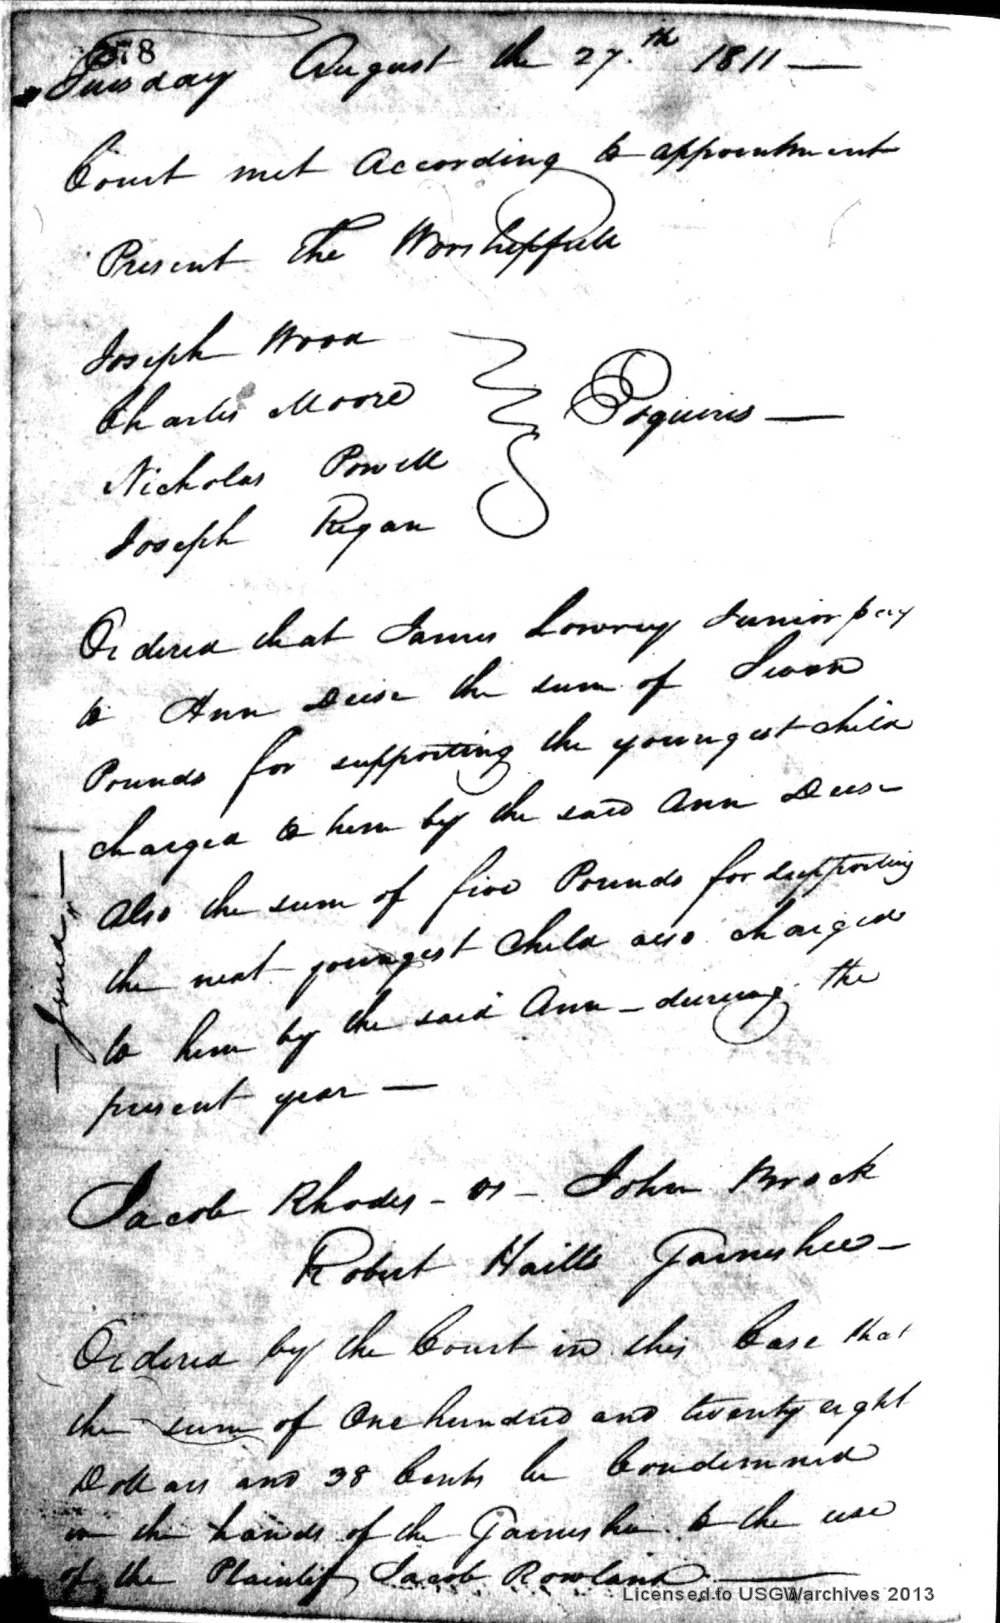 278
Tuesday August the 27.th 1811 —
Court met according to appointment
Present the Worshipfull
Joseph Wood
Charles Moore
Esquires —
Nicholas Powell
Joseph Regan
Ordered that James Lowrey Junior pay
to Ann Deese the sum of Seven
Pounds for supporting the youngest child
charged to him by the said Ann Deese
also the sum of five Pounds for supporting
the next youngest child also charged
to him by the said Ann — during the
present year —
— Issued —
Jacob Rhodes — vs — John Brock
Robert Hails Garneshee —
Ordered by the Court in this Case that
the sum of One hundred and twenty eight
Dollars and 38 Cents be Condemned
in the hands of the Garneshee to the use
of the Plaintif Jacob Rowland —
Licensed to USGWarchives 2013